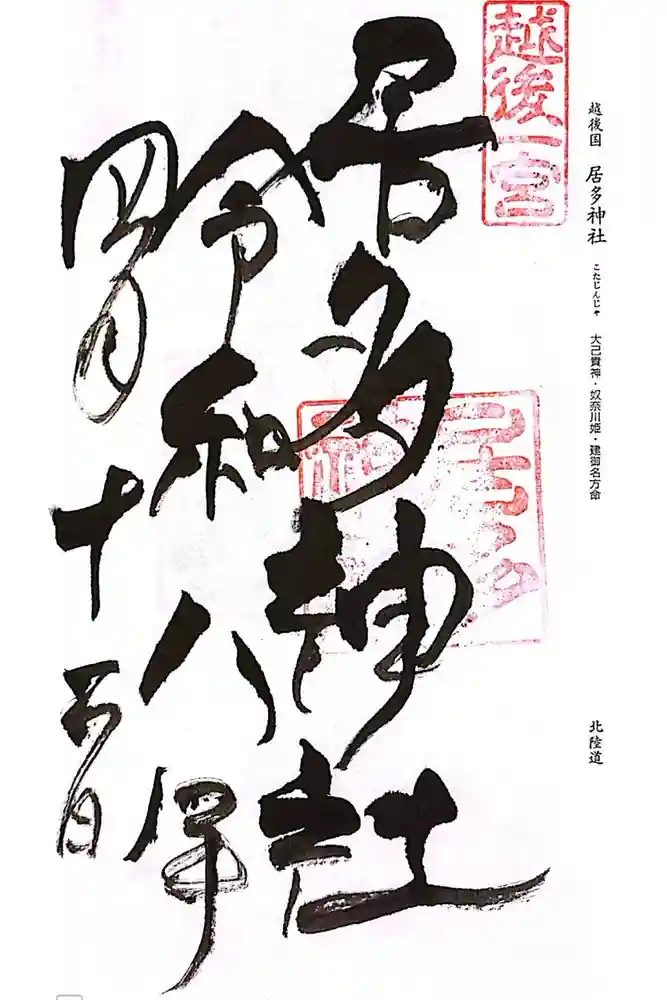 越後国 居多神社 こたじんじゃ 大己貴神・奴奈川姫・建御名方命 北陸道
越後一宮
居多神社
居多
令和八年
四月十五日